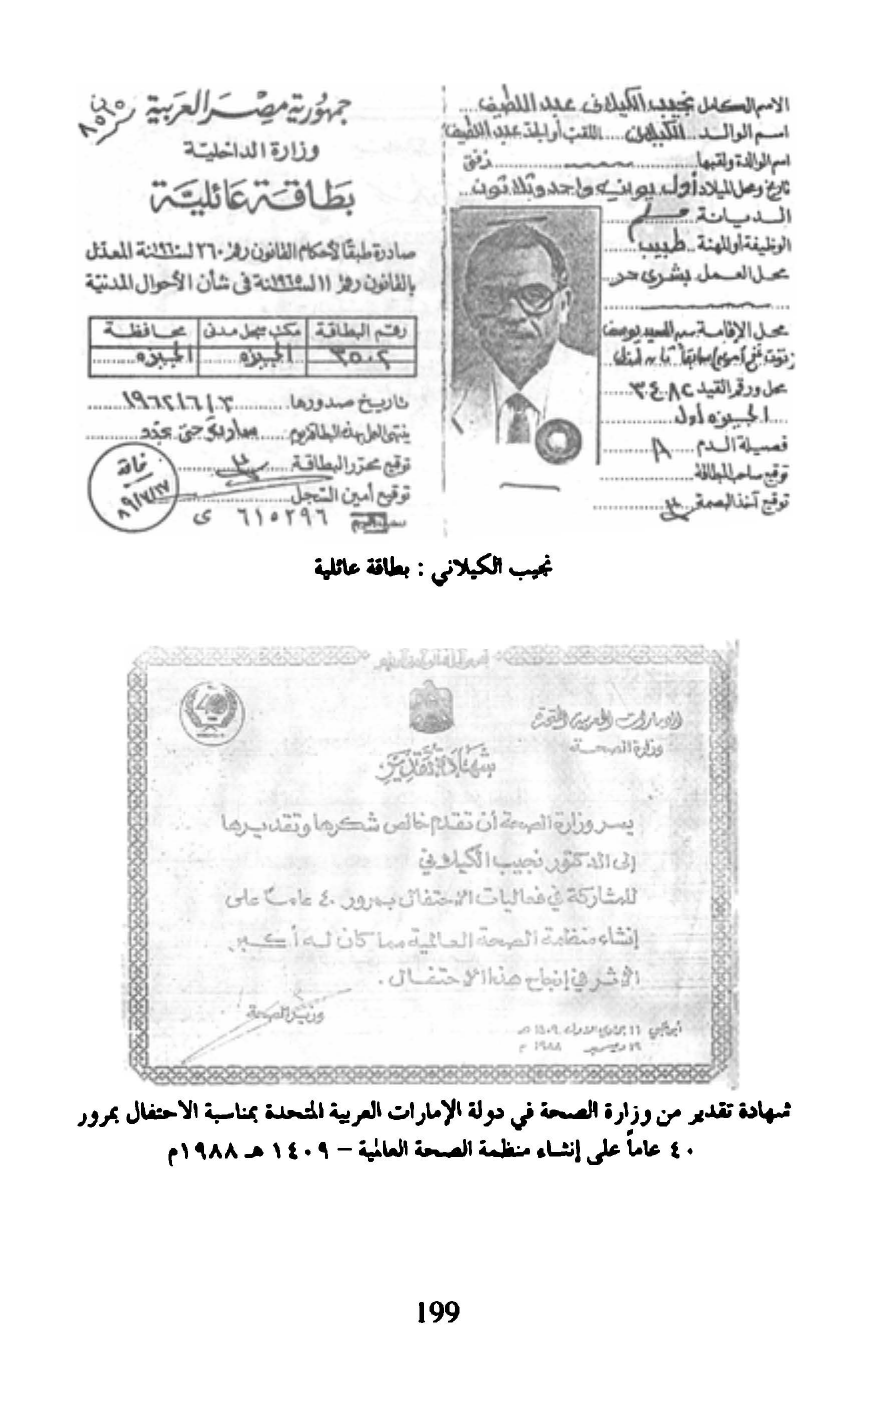 جمهورية مصر العربية
وزارة الداخلية
بطاقة عائلية
صادرة طبقًا لأحكام القانون رقم ٢٦٠ لسنة ١٩٦٠ المعدل
بالقانون رقم ١١ لسنة ١٩٦٥ في شأن الأحوال المدنية
رقم البطاقة مكتب سجل مدنى محافظة
٣٥٠٢ الجيزه الجيزه
تاريخ صدورها ١٩٦٢/٦/٣
ينتهى العمل بهذه البطاقة يوم
توقيع محرر البطاقة
توقيع أمين السجل
٦١٥٢٩٦ ى
الاسم الكامل نجيب الكيلانى عبد اللطيف
اسم الوالد الكيلانى اللقب أو الجد عبد اللطيف
اسم الوالدة ولقبها
تاريخ ومحل الميلاد أول يونيه واحد وثلاثون
الديانة مسلم
الوظيفة أو المهنة طبيب
محل العمل بشرى حر
محل الإقامة
محل ورقم القيد ٣٤٨٢
الجيزه أول
فصيلة الدم A
توقيع صاحب البطاقة
توقيع آخذ البصمة
نجيب الكيلاني : بطاقة عائلية
الإمارات العربية المتحدة
وزارة الصحة
شهادة تقدير
يسر وزارة الصحة أن تقدم خالص شكرها وتقديرها
إلى الدكتور نجيب الكيلاني
للمشاركة في فعاليات الاحتفال بمرور ٤٠ عاماً على
إنشاء منظمة الصحة العالمية مما كان له أكبر
الأثر في إنجاح هذا الاحتفال .
وزير الصحة
شهادة تقدير من وزارة الصحة في دولة الإمارات العربية المتحدة بمناسبة الاحتفال بمرور
٤٠ عاماً على إنشاء منظمة الصحة العالمية – ١٤٠٩ هـ ١٩٨٨م
199